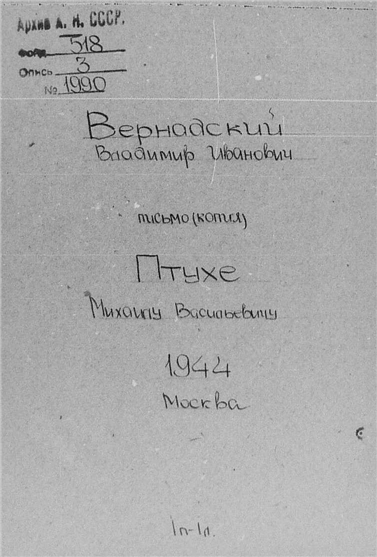 Архив А. Н. СССР.
Фонд 518
Опись 3
№ 1990
Вернадский
Владимир Иванович
письмо (копия)
Птухе
Михаилу Васильевичу
1944
Москва
1п-1л.